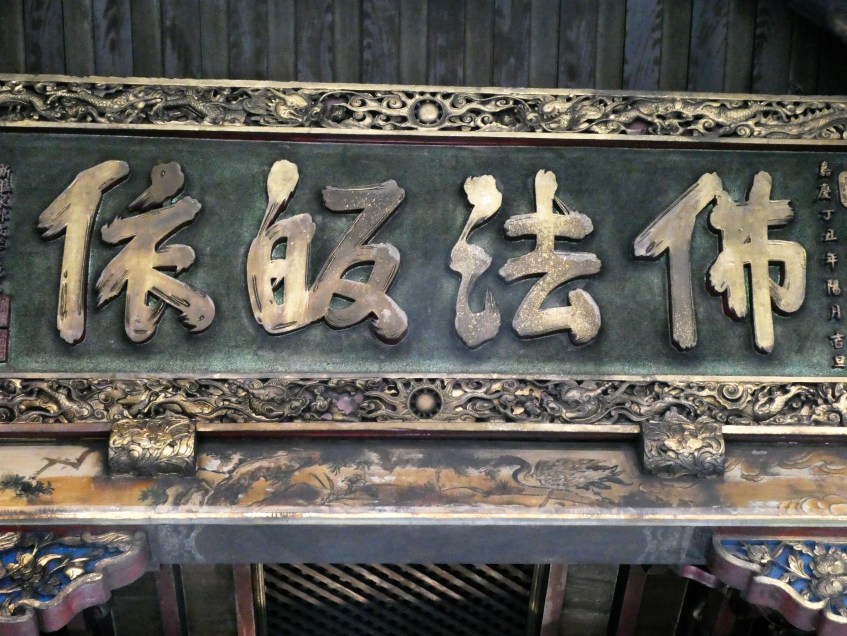 嘉慶丁丑年陽月吉旦
佛法皈依